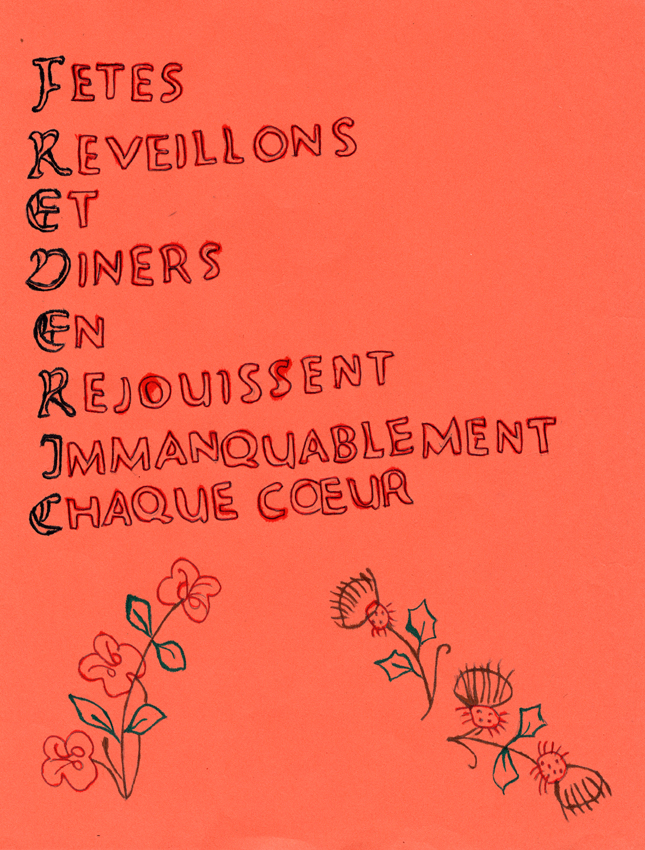 FETES
REVEILLONS
ET
DINERS
EN
REJOUISSENT
IMMANQUABLEMENT
CHAQUE CŒUR